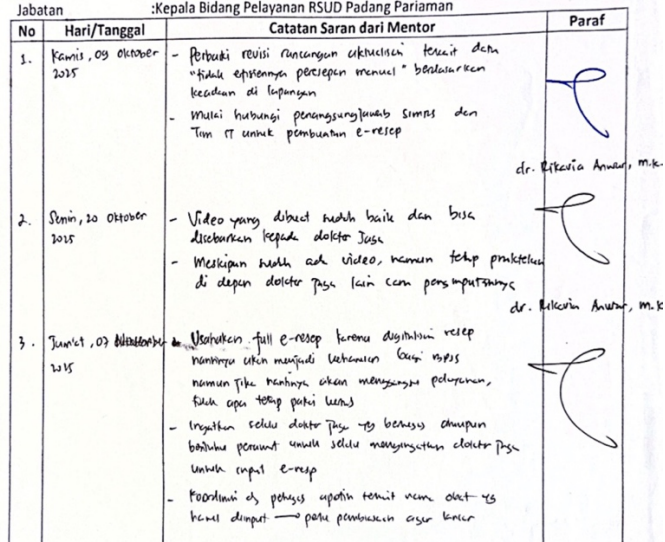 Jabatan :Kepala Bidang Pelayanan RSUD Padang Pariaman
No Hari/Tanggal Catatan Saran dari Mentor Paraf
1. Kamis, 09 Oktober 2025
- Perbaiki revisi rancangan aktualisasi terkait data
"tidak efisiennya peresepan manual" berdasarkan
keadaan di lapangan
- Mulai hubungi penanggungjawab SIMRS dan
Tim IT untuk pembuatan e-resep
dr. Rikavia Anwar, m.k.
2. Senin, 20 Oktober 2025
- Video yang dibuat sudah baik dan bisa
disebarkan kepada dokter Jaga
- Meskipun sudah ada video, namun tetap praktekan
di depan dokter jaga lain cara penginputannya
dr. Rikavia Anwar, m.k
3. Jum'at, 07 2025
- Usahakan full e-resep karena digitalisasi resep
nantinya akan menjadi bagi BPJS
namun jika nantinya akan mengganggu pelayanan,
tidak apa tetap pakai kertas
- Ingatkan selalu dokter jaga yg bertugas ataupun
perawat untuk selalu mengingatkan dokter jaga
untuk input e-resp
- Koordinasi dg petugas apotik terkait nama obat yg
harus diinput → perlu pembiasaan agar lancar